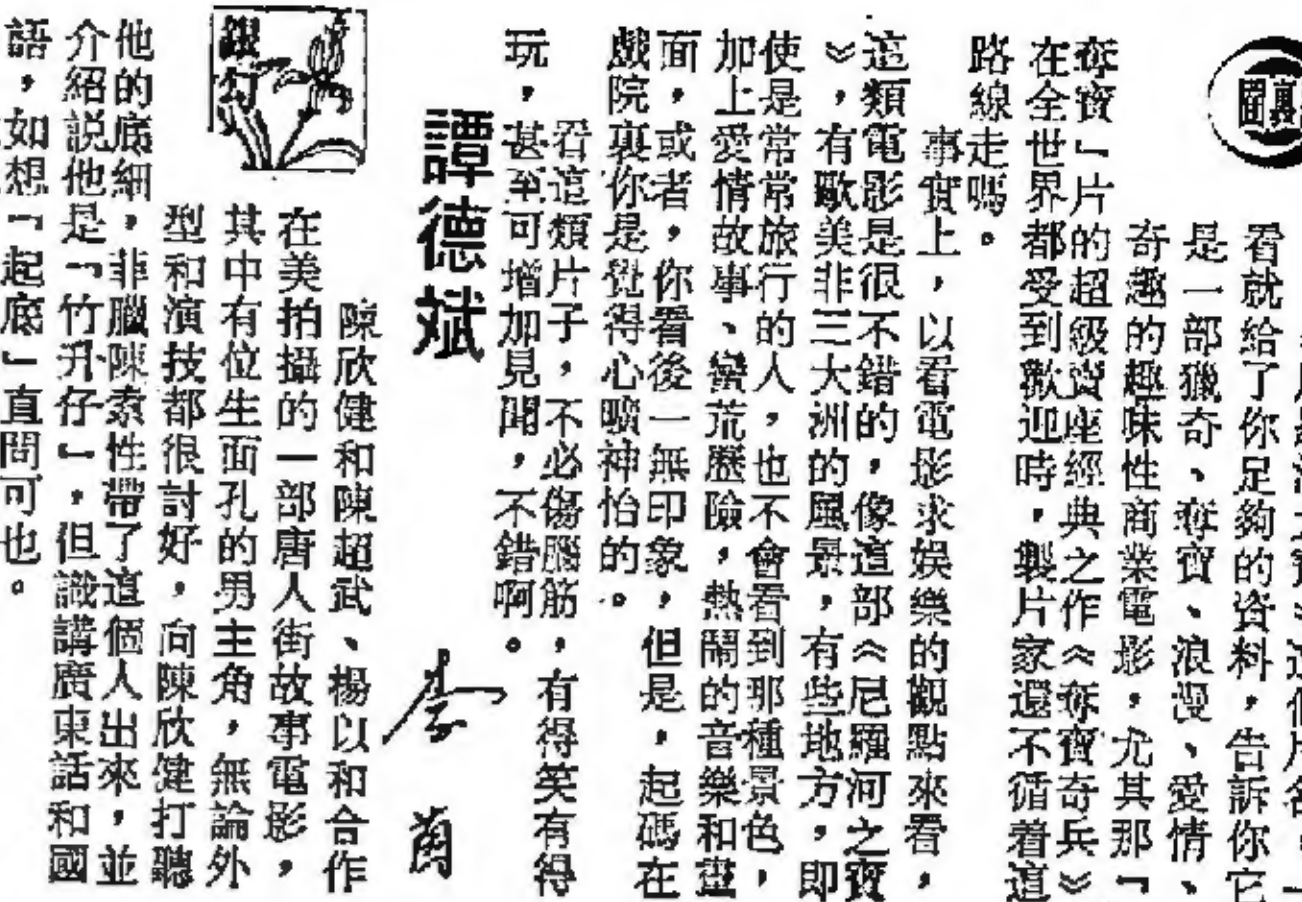 圈裏
看就給了你足夠的資料，告訴你它
是一部獵奇、奪寶、浪漫、愛情、
奇趣的趣味性商業電影，尤其那『
奪寶』片的超級賣座經典之作《奪寶奇兵》
在全世界都受到歡迎時，製片家還不循着這
路線走嗎。
事實上，以看電影求娛樂的觀點來看，
這類電影是很不錯的，像這部《尼羅河之寶
》，有歐美非三大洲的風景，有些地方，即
使是常常旅行的人，也不會看到那種景色，
加上愛情故事、蠻荒歷險，熱鬧的音樂和畫
面，或者，你看後一無印象，但是，起碼在
戲院裏你是覺得心曠神怡的。
看這類片子，不必傷腦筋，有得笑有得
玩，甚至可增加見聞，不錯啊。
譚德斌
銀勾
陳欣健和陳超武、楊以和合作
在美拍攝的一部唐人街故事電影，
其中有位生面孔的男主角，無論外
型和演技都很討好，向陳欣健打聽
他的底細，非臘陳索性帶了這個人出來，並
介紹說他是『竹升仔』，但識講廣東話和國
語，如想『起底』直問可也。